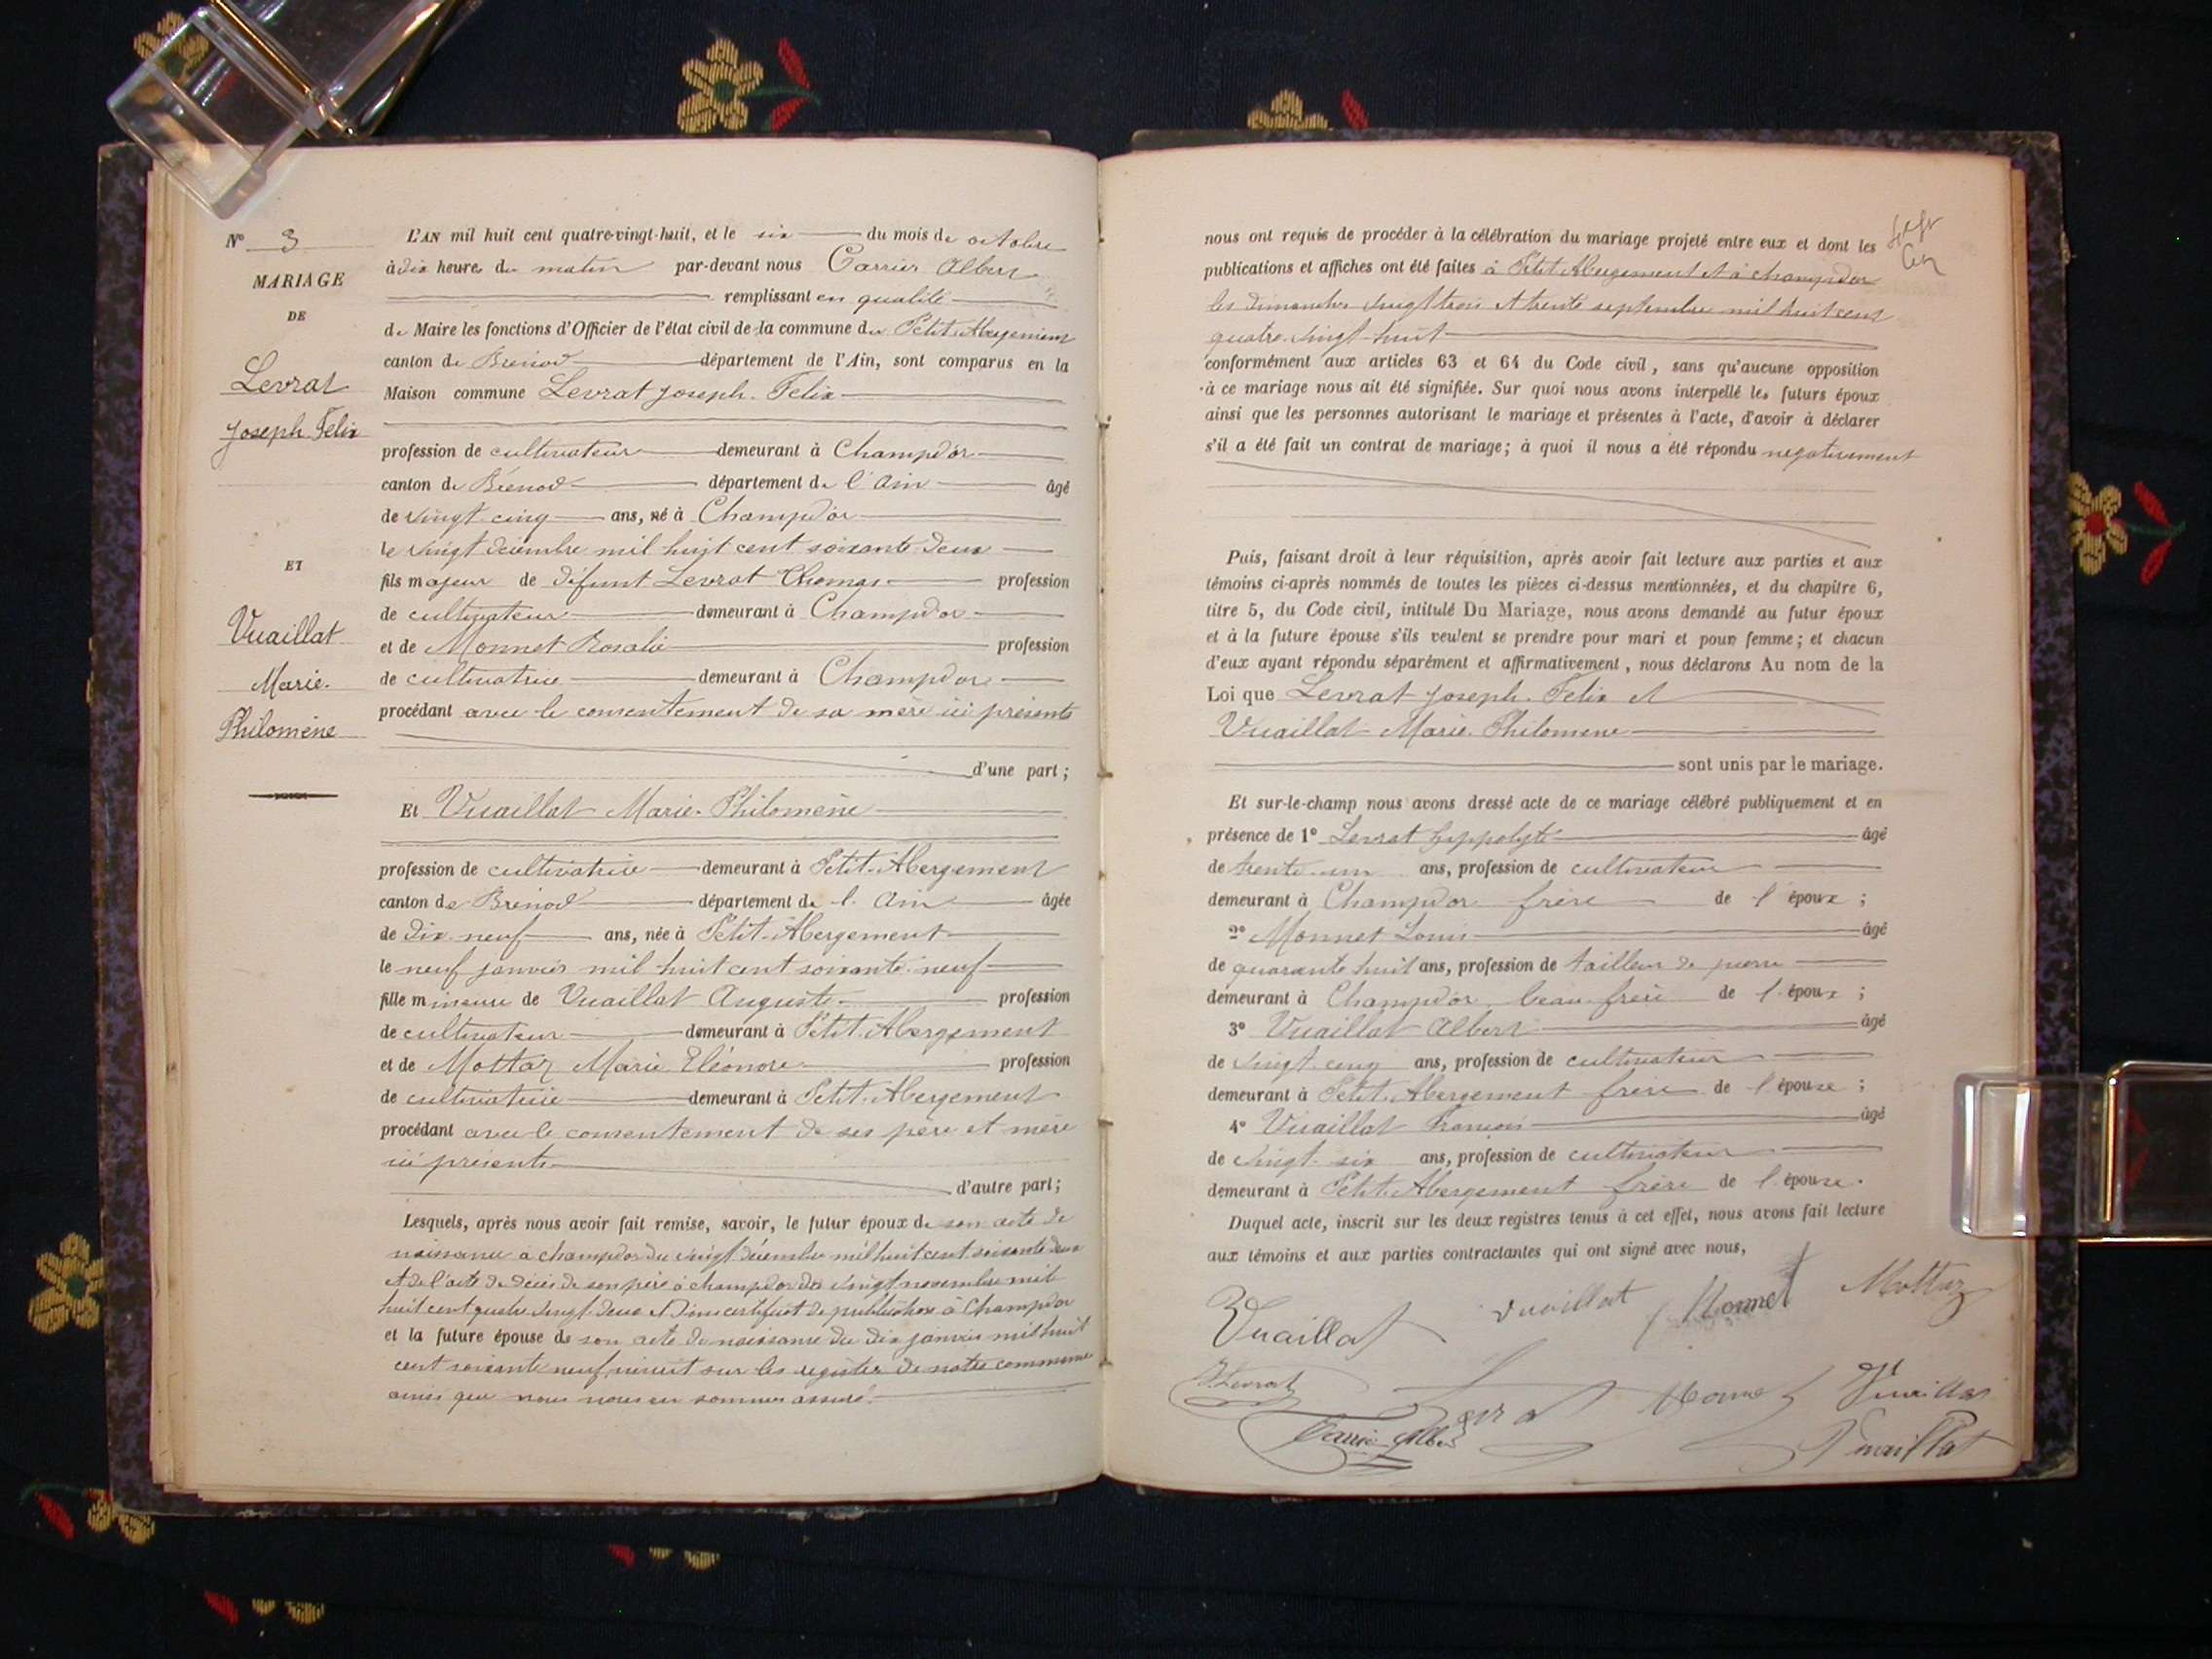 N° 3
MARIAGE
DE
Levrat
Joseph Felix
ET
Vuaillat
Marie.
Philomène
L'AN mil huit cent quatre-vingt-huit, et le six du mois de octobre
à dix heures du matin par-devant nous Carrier Albert
remplissant en qualité
de Maire les fonctions d'Officier de l'état civil de la commune du Petit Abergement
canton de Brénod département de l'Ain, sont comparus en la
Maison commune Levrat Joseph. Felix
profession de cultivateur demeurant à Champdor
canton de Brénod département de l'Ain âgé
de vingt cinq ans, né à Champdor
le vingt décembre mil huit cent soixante deux
fils majeur de défunt Levrat Thomas profession
de cultivateur demeurant à Champdor
et de Monnet Rosalie profession
de cultivatrice demeurant à Champdor
procédant avec le consentement de sa mère ici présente
d'une part;
Et Vuaillat Marie. Philomène
profession de cultivatrice demeurant à Petit-Abergement
canton de Brénod département de l'Ain âgée
de dix neuf ans, née à Petit-Abergement
le neuf janvier mil huit cent soixante neuf
fille mineure de Vuaillat Auguste profession
de cultivateur demeurant à Petit. Abergement
et de Mottaz Marie Eléonore profession
de cultivatrice demeurant à Petit. Abergement
procédant avec le consentement de ses père et mère
ici présents
d'autre part;
Lesquels, après nous avoir fait remise, savoir, le futur époux de son acte de
naissance à champdor du vingt décembre mil huit cent soixante deux
et de l'acte de décès de son père à champdor du vingt novembre mil
huit cent quatre vingt deux et d'un certificat de publication à Champdor
et la future épouse de son acte de naissance du dix janvier mil huit
cent soixante neuf inscrit sur les registres de notre commune
ainsi que nous nous en sommes assuré.
nous ont requis de procéder à la célébration du mariage projeté entre eux et dont les
publications et affiches ont été faites à Petit Abergement et à champdor
les dimanches vingt trois et trente septembre mil huit cent
quatre-vingt-huit
conformément aux articles 63 et 64 du Code civil, sans qu'aucune opposition
à ce mariage nous ait été signifiée. Sur quoi nous avons interpellé les futurs époux
ainsi que les personnes autorisant le mariage et présentes à l'acte, d'avoir à déclarer
s'il a été fait un contrat de mariage; à quoi il nous a été répondu negativement
Puis, faisant droit à leur réquisition, après avoir fait lecture aux parties et aux
témoins ci-après nommés de toutes les pièces ci-dessus mentionnées, et du chapitre 6,
titre 5, du Code civil, intitulé Du Mariage, nous avons demandé au futur époux
et à la future épouse s'ils veulent se prendre pour mari et pour femme; et chacun
d'eux ayant répondu séparément et affirmativement, nous déclarons Au nom de la
Loi que Levrat Joseph. Felix et
Vuaillat Marie. Philomene
sont unis par le mariage.
Et sur-le-champ nous avons dressé acte de ce mariage célébré publiquement et en
présence de 1° Levrat hyppolyte âgé
de trente-un ans, profession de cultivateur
demeurant à Champdor frère de l'époux;
2° Monnet Louis âgé
de quarante huit ans, profession de tailleur de pierre
demeurant à Champdor. beau-frère de l'époux;
3° Vuaillat Albert âgé
de vingt cinq ans, profession de cultivateur
demeurant à Petit. Abergement frère de l'épouse;
4° Vuaillat François âgé
de vingt six ans, profession de cultivateur
demeurant à Petit. Abergement frère de l'épouse.
Duquel acte, inscrit sur les deux registres tenus à cet effet, nous avons fait lecture
aux témoins et aux parties contractantes qui ont signé avec nous,
Vuaillat vuaillat Monnet Mottaz
Levrat Levrat Monnet Vuaillat
Carrier Albert Vuaillat